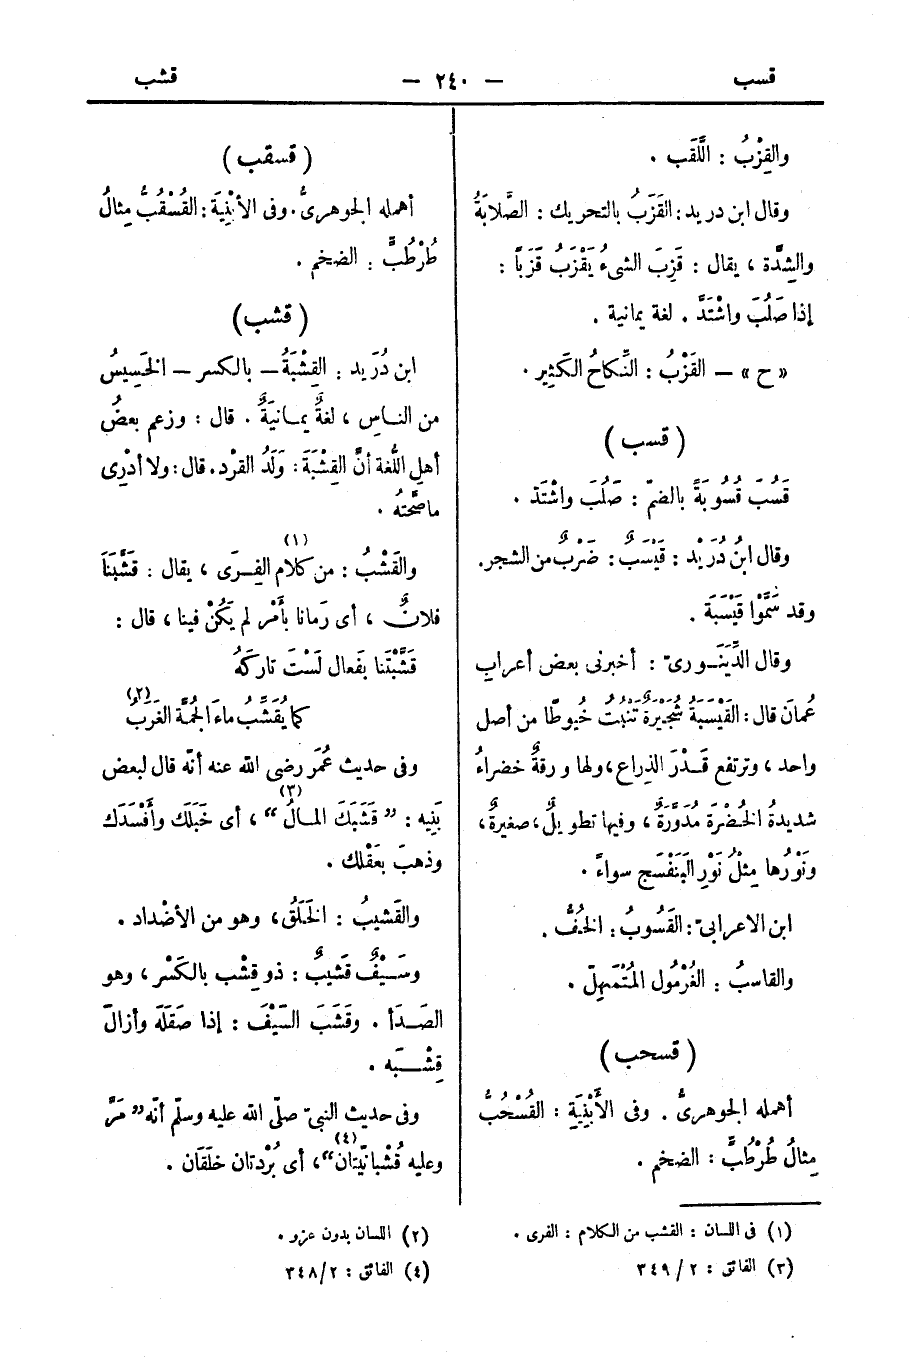 قسب — ٢٤٠ — قشب
والقِزْبُ : اللَّقَب .
وقال ابن دريد: القَزَبُ بالتحريك : الصَّلابَةُ
والشِدَّة ، يقال : قَزِبَ الشىءُ يَقْزَبُ قَزَباً :
إذا صَلُبَ واشْتَدَّ . لغة يمانية .
« ح » — القَزْبُ : النِّكاحُ الكَثِير .
( قسب )
قَسُبَ قُسُوبَةً بالضمّ : صَلُبَ واشْتَدّ .
وقال ابنُ دُرَيْد : قَيْسَبٌ : ضَرْبٌ من الشجر.
وقد سَمَّوْا قَيْسَبَة .
وقال الدِّيَنَـورىّ : أخبرنى بعض أعراب
عُمانَ قال: القَيْسَبَةُ شُجَيْرَةٌ تَنْبُتُ خُيوطًا من أصل
واحد ، وترتفع قَـدْرَ الذِراع ، ولها ورقةٌ خضراءُ
شديدةُ الخُضْرَة مُدَوَّرَةٌ ، وفيها تطويلٌ، صغيرةٌ ،
ونَوْرُها مِثْلُ نَوْرِ البَنَفْسَج سواءً .
ابن الاعرابىّ : القَسُوبُ : الخُفُّ .
والقاسبُ : الغُرْمُول المُتْمَهِلّ .
( قسحب )
أهمله الجوهرىُّ . وفى الأَبْنِيَةِ : القُسْحُبُّ
مِثالُ طُرْطُبٍّ : الضخم .
( قسقب )
أهمله الجوهرىُّ. وفى الأَبْنِيَة : القُسْقُبُّ مِثالُ
طُرْطُبٍّ : الضخم .
( قشب )
ابن دُرَيد : القِشْبَةُ — بالكسر — الخَسِيسُ
من النـاسِ ، لغةٌ يمـانيَةٌ . قال : وزعم بعضُ
أهلِ اللُّغة أنَّ القِشْبَةَ : وَلَدُ القرْد. قال : ولا أدْرِى
ماصِّحتهُ .
والقَشْبُ : من كلام الفِـرَى (١) ، يقال : قَشَّبَنَا
فلانٌ ، أى رَمانا بأَمْر لم يَكُنْ فينا ، قال :
قَشَّبْتَنا بفَعال لَسْتَ تاركَهُ
كما يُقَشَّبُ ماءَ الجُمَّة الغَرَبُ (٢)
وفى حديث عُمَرَ رضى الله عنه أنّه قال لبعض
بَنِيه : ” قَشَبَكَ المـالُ “ (٣) ، أى خَبَلَك وأَفْسَدَك
وذهبَ بعَقْلك .
والقَشيبُ : الخَلَقُ ، وهو من الأضْداد .
وسَـيْفٌ قَشيبٌ : ذو قِشْب بالكَسْر ، وهو
الصَـدَأ . وقَشَبَ السَّيْفَ : إذا صَقَلَه وأزالَ
قِشْـبَه .
وفى حديث النبىّ صلّى الله عليه وسلّم أنّه ” مَرَّ
وعليه قُشْبانيّتان “ (٤) ، أى بُرْدتان خَلَقَان .
(١) فى اللسان : القشب من الكلام : الفرى .
(٢) اللسان بدون عزو .
(٣) الفائق : ٢ / ٣٤٩
(٤) الفائق : ٢/ ٣٤٨